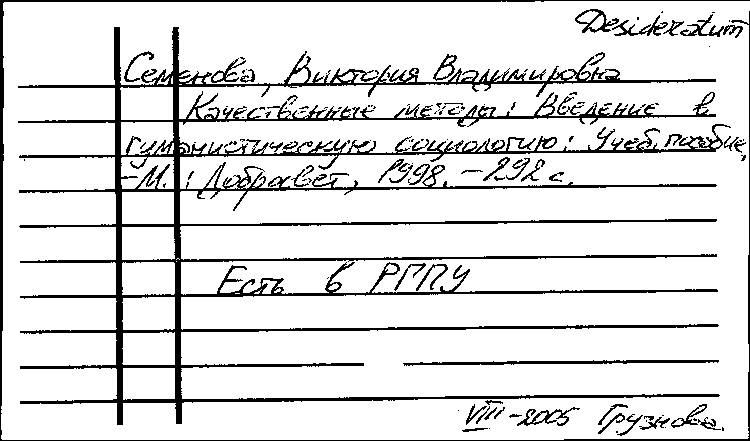 Desideratum
Семенова, Виктория Владимировна
Качественные методы: Введение в
гуманистическую социологию: Учеб. пособие,
-М.: Добросвет, 1998. - 292 с.
Есть в РГПУ
VIII-2005 Грузнова.